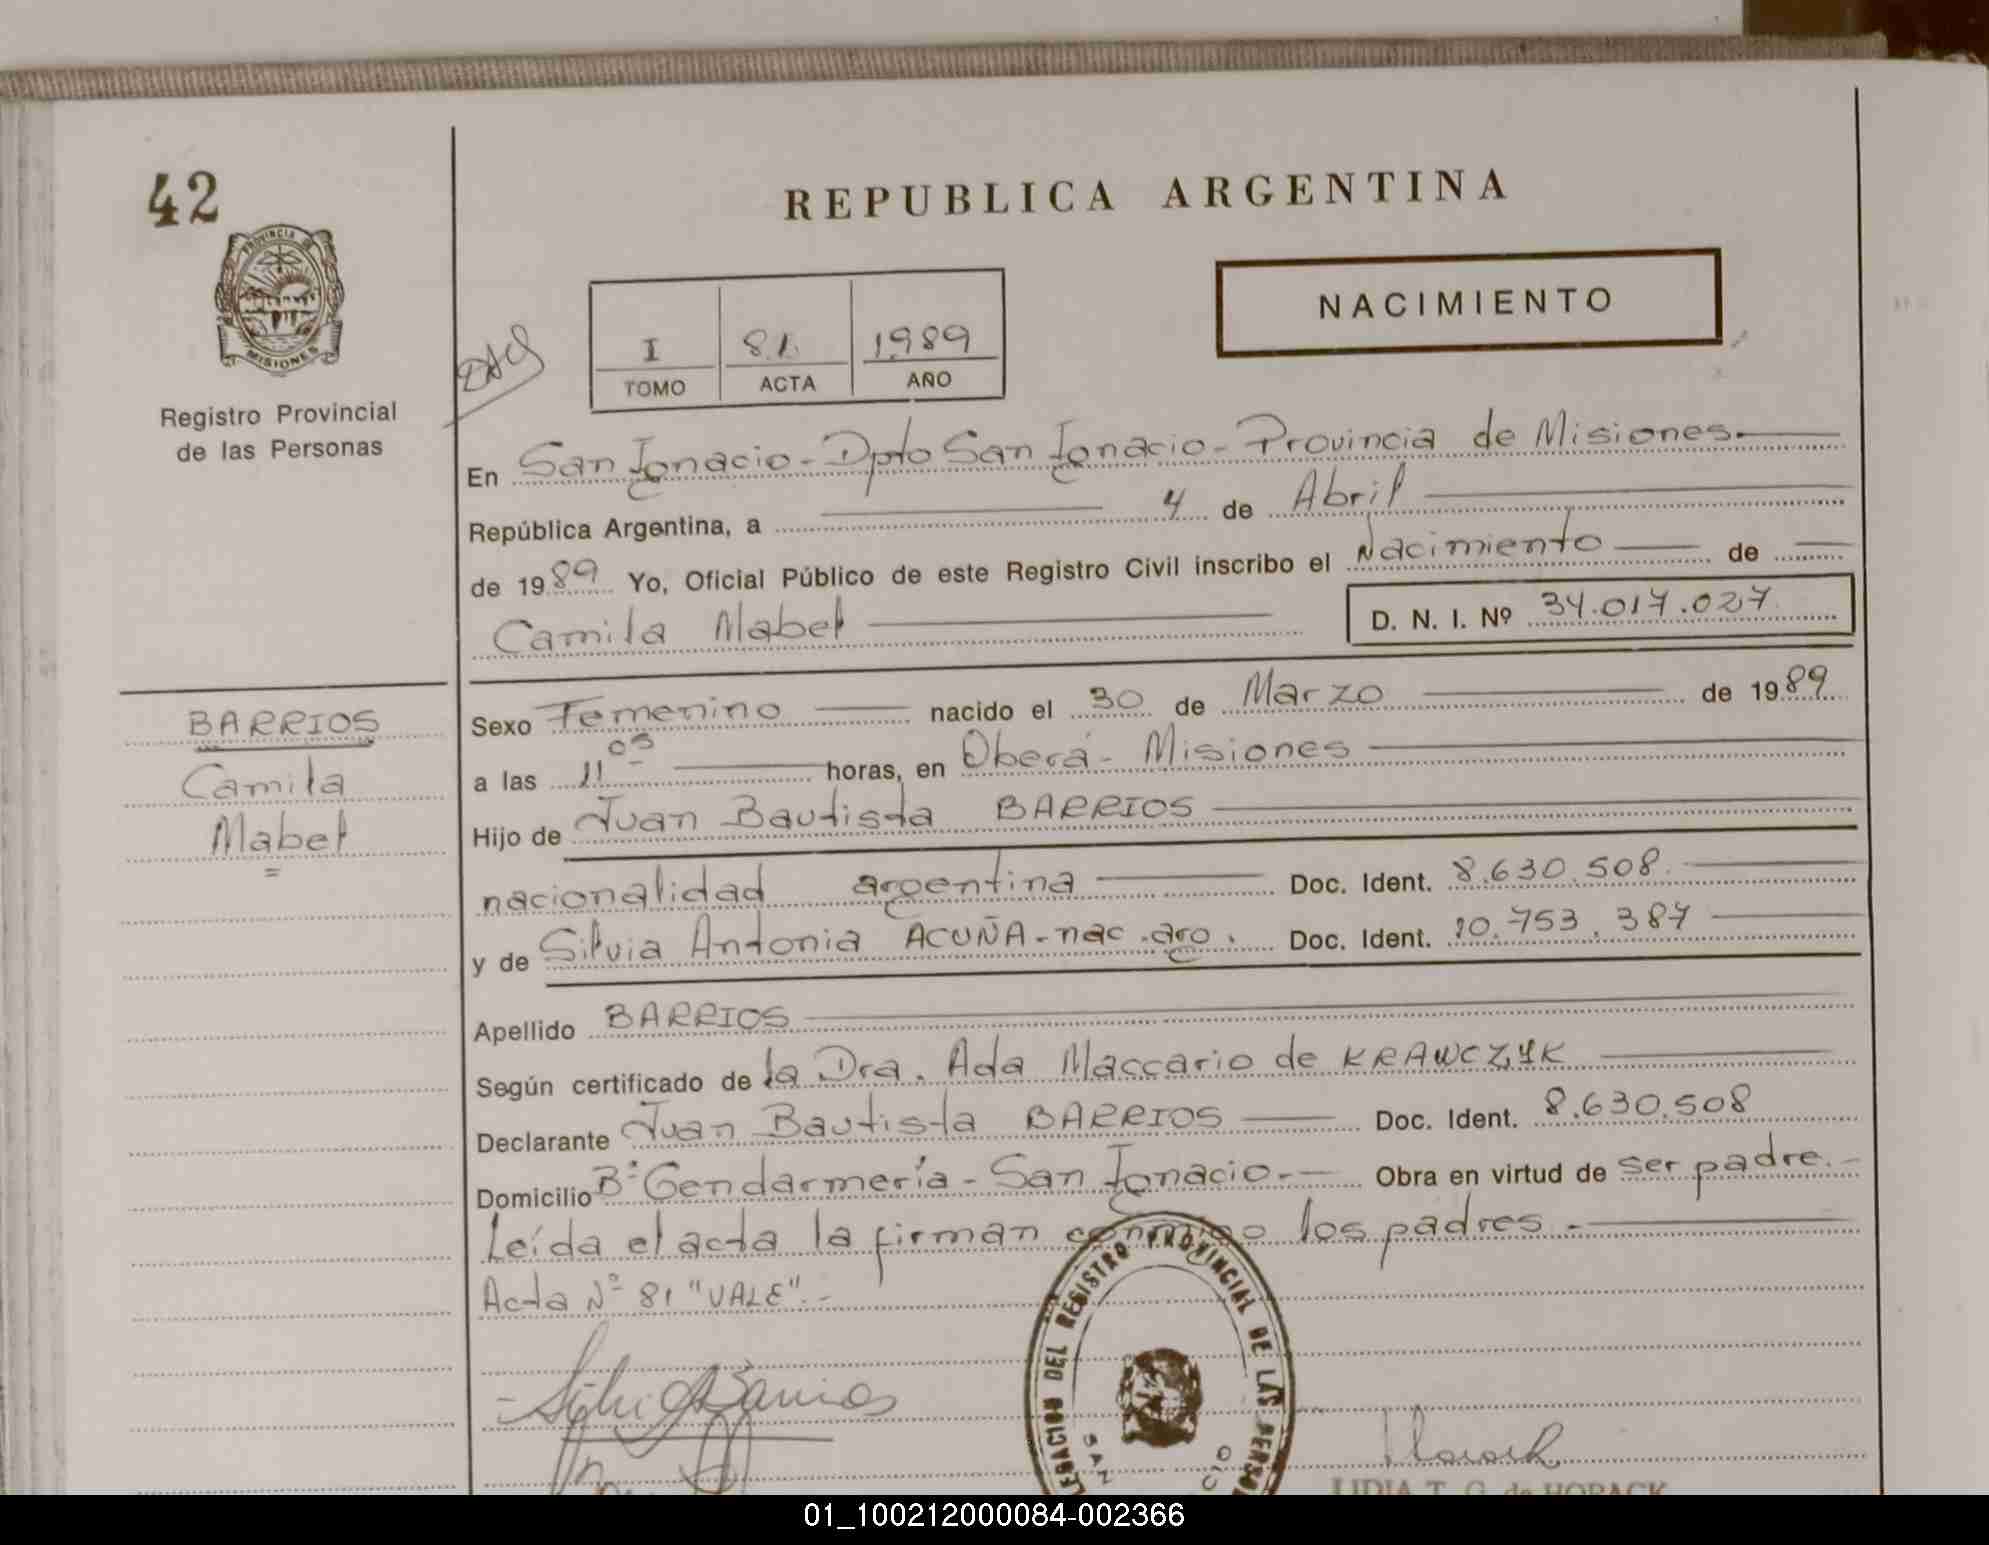 42
REPUBLICA ARGENTINA
PROVINCIA DE
MISIONES
Registro Provincial
de las Personas
NACIMIENTO
I 81 1989
TOMO ACTA AÑO
En San Ignacio - Dpto San Ignacio - Provincia de Misiones.
República Argentina, a 4 de Abril
de 1989 Yo, Oficial Público de este Registro Civil inscribo el Nacimiento de
Camila Mabel D. N. I. Nº 34.017.027
BARRIOS
Camila
Mabel
Sexo Femenino nacido el 30 de Marzo de 1989
a las 11 05 horas, en Oberá - Misiones
Hijo de Juan Bautista BARRIOS
nacionalidad argentina Doc. Ident. 8.630.508.
y de Silvia Antonia ACUÑA - nac. arg. Doc. Ident. 10.753.387
Apellido BARRIOS
Según certificado de la Dra. Ada Maccario de KRAWCZYK
Declarante Juan Bautista BARRIOS Doc. Ident. 8.630.508
Domicilio Bº Gendarmería - San Ignacio - Obra en virtud de ser padre. -
Leída el acta la firman conmigo los padres. -
Acta Nº 81 "VALE". -
DEL REGISTRO PROVINCIAL DE LAS
SAN
LIDIA T. G. de HORACK
01_100212000084-002366